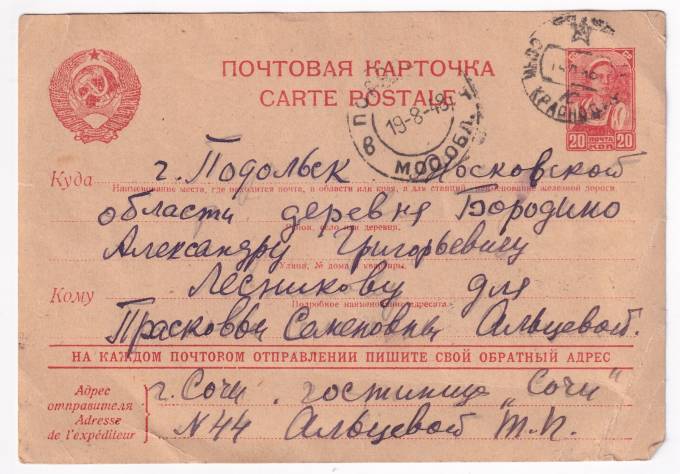 ПОЧТОВАЯ КАРТОЧКА
CARTE POSTALE
19-8-48
МОС ОБЛ.
КРАСНОД
20 ПОЧТА 20
КОП.
Куда г. Подольск Московской
Наименование места, где находится почта, а области или края, а для станций наименование железной дороги
области деревня Бородино
Район, село или деревня.
Александру Григорьевичу
Улица, № дома и квартиры.
Кому Лесникову для
Подробное наименование адресата.
Прасковьи Семеновны Альцевой.
НА КАЖДОМ ПОЧТОВОМ ОТПРАВЛЕНИИ ПИШИТЕ СВОЙ ОБРАТНЫЙ АДРЕС
Адрес отправителя
Adresse de l'expéditeur
г. Сочи. гостиница „Сочи"
N 44 Альцевой Т.П.